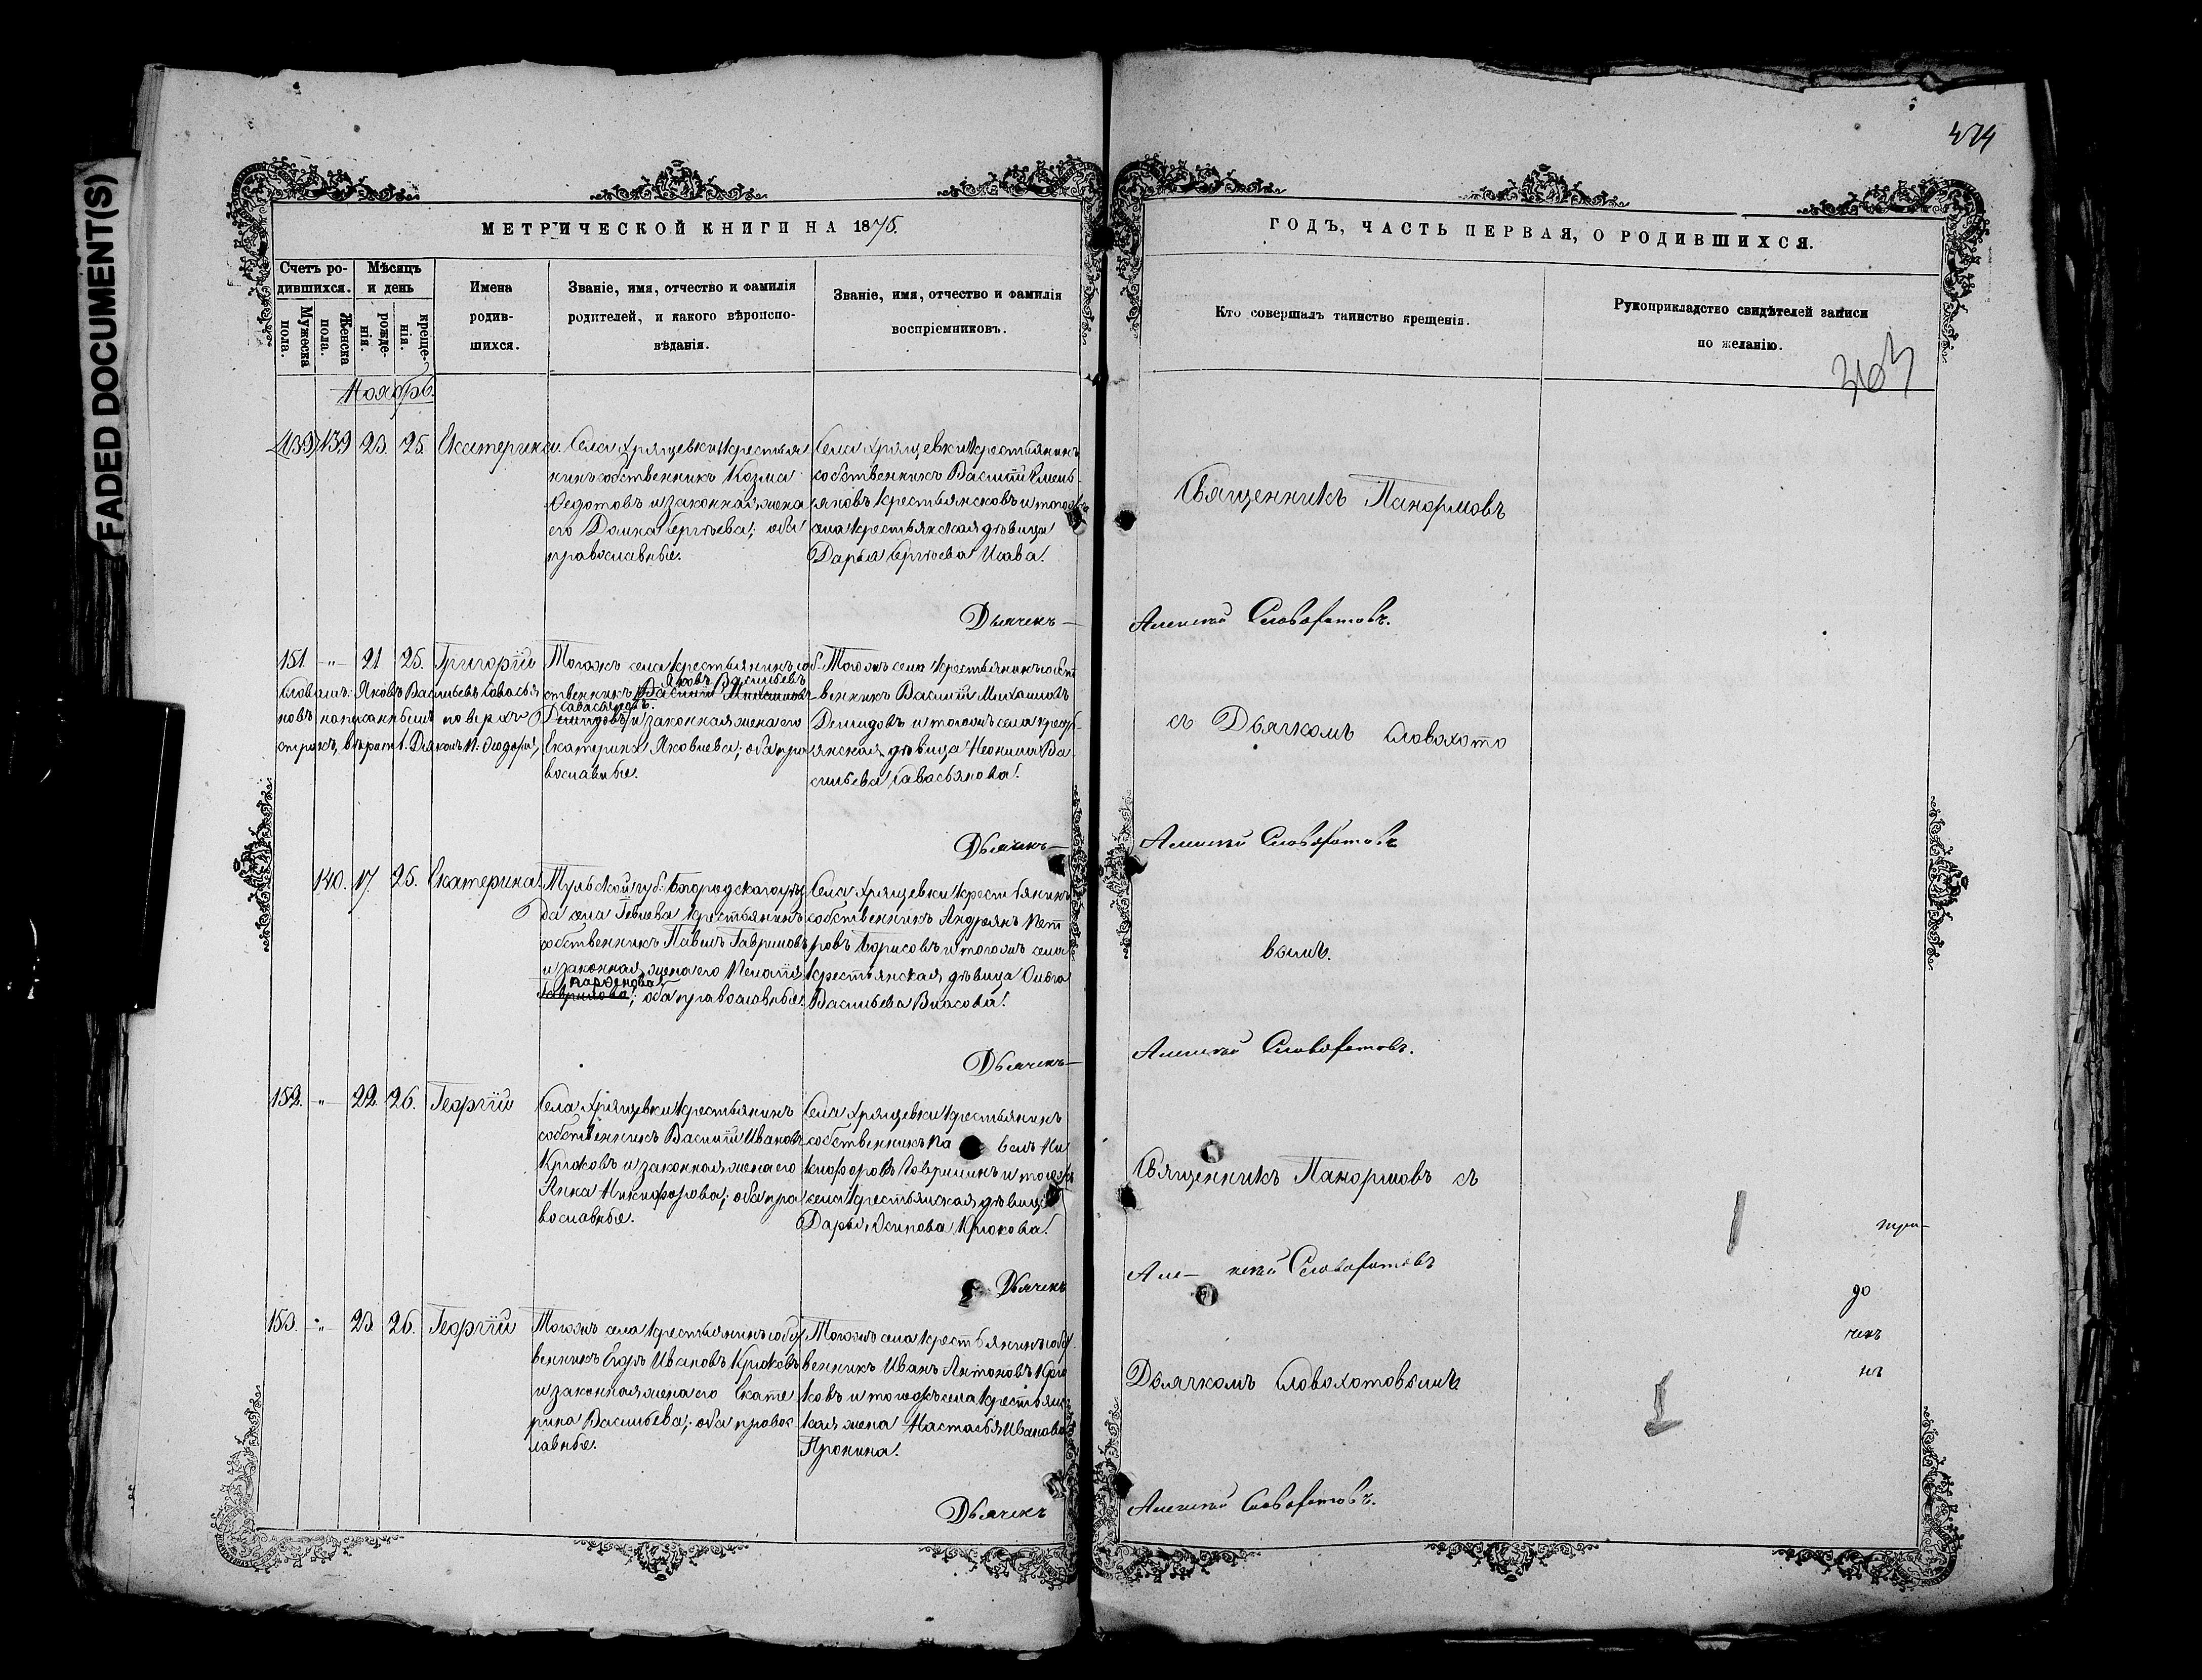 FADED DOCUMENT(S)
474
МЕТРИЧЕСКОЙ КНИГИ НА 1875.
ГОДЪ, ЧАСТЬ ПЕРВАЯ, О РОДИВШИХСЯ.
Счетъ ро-
дившихся.
Мужеска
пола.
Женска
пола.
Мѣсяцъ
и день
рожде-
нія.
креще-
нія.
Имена
родив-
шихся.
Званіе, имя, отчество и фамилія
родителей, и какого вѣроиспо-
вѣданія.
Званіе, имя, отчество и фамилія
воспріемниковъ.
Кто совершалъ таинство крещенія.
Рукоприкладство свидѣтелей записи
по желанію.
Ноябрь.
139 23. 25. Екатерина.
Села Хрящевки крестья
нинъ собственникъ Козма
Ѳедотовъ и законная жена
его Домна Сергѣева; оба
православные.
Села Хрящевки крестьянинъ
собственникъ Василій Емель
яновъ и того
села крестьянская дѣвица
Дарья Сергѣева
Священникъ Панормовъ
Дьячекъ — Алексѣй Словохотовъ.
151. -„- 21 25. Григорій
Тогожъ села крестьянинъ соб
Яковъ Васильевъ
ственникъ Василій Михаиловъ
Савасьяновъ.
Демидовъ и законная жена его
Екатерина Яковлева; оба пра
вославные.
Яковъ Васильевъ Савасья
новъ написаннымъ поверхъ
Тогожъ села крестьянинъ собст
венникъ Василій Михаиловъ
Демидовъ и тогожъ села кресть
янская дѣвица Неонила Ва
сильева Савасьянова.
съ Дьячкомъ Словохото
Дьячекъ — Алексѣй Словохотовъ
140. 17 25. Екатерина
Тульской губ. Богородскаго уѣз
да села крестьянинъ
собственникъ Павелъ Гавриловъ
и законная жена его Пелагія
Парѳенова
Гаврилова; оба православные.
Села Хрящевки крестьянинъ
собственникъ Андреянъ Пет
ровъ Борисовъ и тогожъ села
крестьянская дѣвица Ольга
Васильева Власова.
вымъ.
Дьячекъ — Алексѣй Словохотовъ.
152. -„- 22. 26. Георгій
Села Хрящевки крестьянинъ
собственникъ Василій Ивановъ
Крюковъ и законная жена его
Анна Никифорова; оба пра
вославные.
Села Хрящевки крестьянинъ
собственникъ Па велъ Ни
кифоровъ Гаврилинъ и тогожъ
села крестьянская дѣвица
Дарья Осипова Крюкова.
Священникъ Панормовъ съ
Дьячекъ Але- ксѣй Словохотовъ
153. -„- 23. 26. Георгій
Тогожъ села крестьянинъ собст
венникъ Егоръ Ивановъ Крюковъ
и законная жена его Екате
рина Васильева; оба правос
лавные.
Тогожъ села крестьянинъ собст
венникъ Иванъ Антоновъ Крю
ковъ и тогожъ села крестьянс
кая жена Настасья Иванова
Пронина.
Дьячкомъ Словохотовымъ
до
Дьячекъ Алексѣй Словохотовъ.